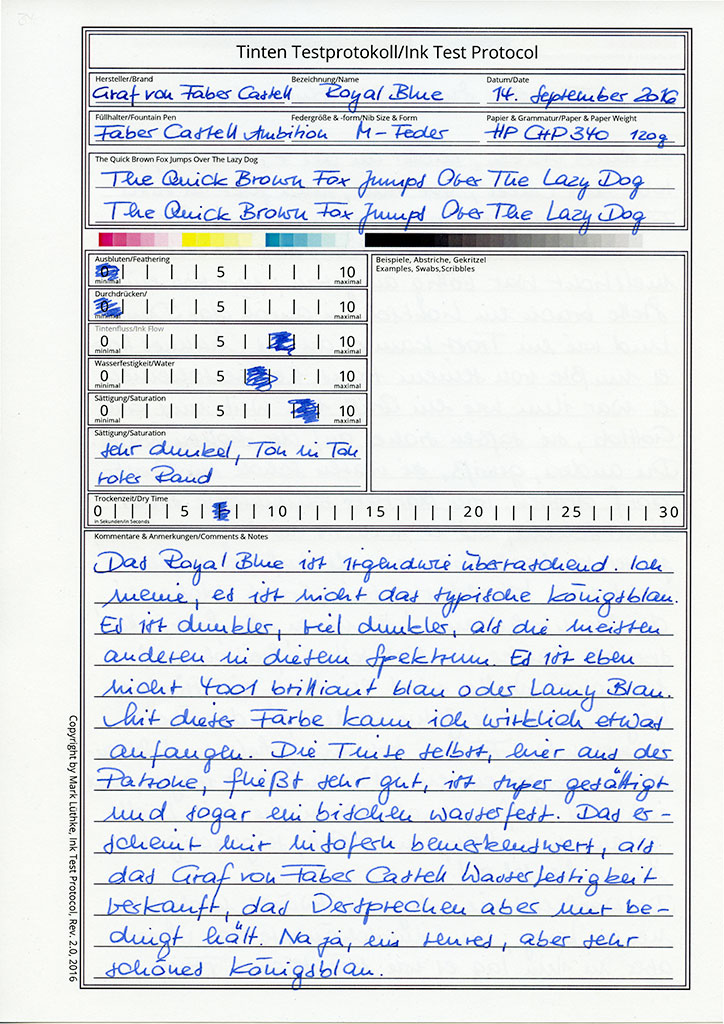 Tinten Testprotokoll/Ink Test Protocol
Hersteller/Brand Bezeichnung/Name Datum/Date
Graf von Faber Castell Royal Blue 14. September 2016
Füllhalter/Fountain Pen Federgröße & -form/Nib Size & Form Papier & Grammatur/Paper & Paper Weight
Faber Castell Ambition M-Feder HP CHP340 120g
The Quick Brown Fox Jumps Over The Lazy Dog
The Quick Brown Fox Jumps Over The Lazy Dog
The Quick Brown Fox Jumps Over The Lazy Dog
Ausbluten/Feathering
0 | | | | 5 | | | | 10
minimal maximal
Durchdrücken/
0 | | | | 5 | | | | 10
minimal maximal
Tintenfluss/Ink Flow
0 | | | | 5 | | | | 10
minimal maximal
Wasserfestigkeit/Water
0 | | | | 5 | | | | 10
minimal maximal
Sättigung/Saturation
0 | | | | 5 | | | | 10
minimal maximal
Sättigung/Saturation
sehr dunkel, Ton in Ton
roter Rand
Beispiele, Abstriche, Gekritzel
Examples, Swabs,Scribbles
Trockenzeit/Dry Time
0 | | | | 5 | | | | 10 | | | | 15 | | | | 20 | | | | 25 | | | | 30
in Sekunden/in Seconds
Kommentare & Anmerkungen/Comments & Notes
Das Royal Blue ist irgendwie überraschend. Ich
meine, es ist nicht das typische Königsblau.
Es ist dunkler, viel dunkler, als die meisten
anderen in diesem Spektrum. Es ist eben
nicht 4001 brilliant blau oder Lamy Blau.
Mit dieser Farbe kann ich wirklich etwas
anfangen. Die Tinte selbst, hier aus der
Patrone, fließt sehr gut, ist super gesättigt
und sogar ein bischen wasserfest. Das er-
scheint mir insofern bemerkenswert, als
das Graf von Faber Castell Wasserfestigkeit
verkauft, das Versprechen aber nur be-
dingt hält. Na ja, ein teures, aber sehr
schönes Königsblau.
Copyright by Mark Lüthke, Ink Test Protocol, Rev. 2.0, 2016